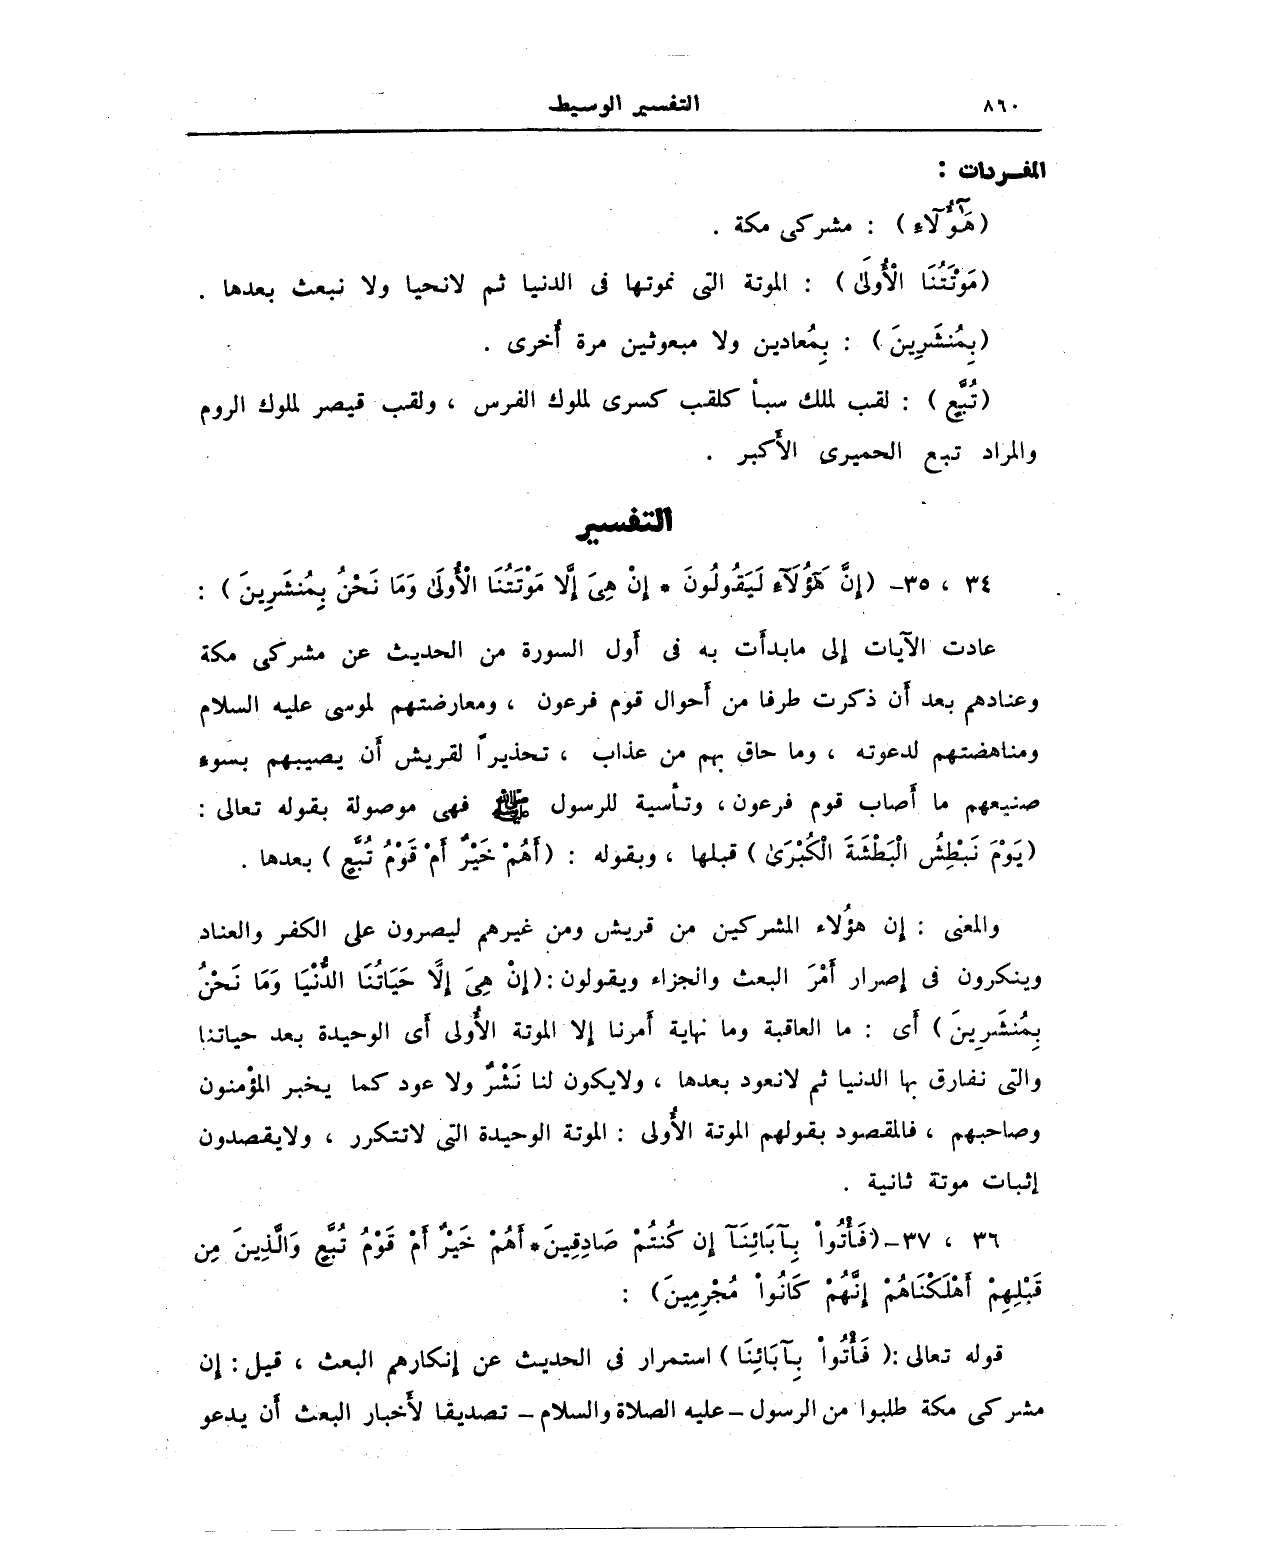 ٨٦٠
التفسير الوسيط
المفـردات :
(هَـٰٓؤُلَآءِ) : مشركى مكة .
(مَوْتَتُنَا الْأُولَىٰ) : الموتة التى نموتها فى الدنيا ثم لانحيا ولا نبعث بعدها .
(بِمُنشَرِينَ) : بِمُعادين ولا مبعوثين مرة أُخرى .
(تُبَّعٍ) : لقب لملك سبأ كلقب كسرى لملوك الفرس ، ولقب قيصر لملوك الروم
والمراد تبع الحميرى الأَكبر .
التفسير
٣٤ ، ٣٥– (إِنَّ هَـٰٓؤُلَآءِ لَيَقُولُونَ * إِنْ هِىَ إِلَّا مَوْتَتُنَا الْأُولَىٰ وَمَا نَحْنُ بِمُنشَرِينَ) :
عادت الآيات إلى مابدأَت به فى أَول السورة من الحديث عن مشركى مكة
وعنادهم بعد أَن ذكرت طرفا من أَحوال قوم فرعون ، ومعارضتهم لموسى عليه السلام
ومناهضتهم لدعوته ، وما حاق بهم من عذاب ، تحذيراً لقريش أَن يصيبهم بسوء
صنيعهم ما أَصاب قوم فرعون، وتأسية للرسول ﷺ فهى موصولة بقوله تعالى :
(يَوْمَ نَبْطِشُ الْبَطْشَةَ الْكُبْرَىٰ) قبلها ، وبقوله : (أَهُمْ خَيْرٌ أَمْ قَوْمُ تُبَّعٍ) بعدها .
والمعنى : إِن هؤُلاء المشركين من قريش ومن غيرهم ليصرون على الكفر والعناد
وينكرون فى إصرار أَمْرَ البعث والجزاء ويقولون:(إِنْ هِىَ إِلَّا حَيَاتُنَا الدُّنْيَا وَمَا نَحْنُ
بِمُنشَرِينَ) أَى : ما العاقبة وما نهاية أَمرنا إلا الموتة الأُولى أَى الوحيدة بعد حياتنا
والتى نفارق بها الدنيا ثم لانعود بعدها ، ولايكون لنا نَشْرٌ ولا عود كما يخبر المؤْمنون
وصاحبهم ، فالمقصود بقولهم الموتة الأُولى : الموتة الوحيدة التى لاتتكرر ، ولايقصدون
إثبات موتة ثانية .
٣٦ ، ٣٧–(فَأْتُواْ بِـَٔابَآئِنَآ إِن كُنتُمْ صَادِقِينَ*أَهُمْ خَيْرٌ أَمْ قَوْمُ تُبَّعٍ وَالَّذِينَ مِن
قَبْلِهِمْ أَهْلَكْنَاهُمْ إِنَّهُمْ كَانُواْ مُجْرِمِينَ) :
قوله تعالى:( فَأْتُواْ بِـَٔابَآئِنَا) استمرار فى الحديث عن إنكارهم البعث ، قيل : إن
مشركى مكة طلبوا من الرسول – عليه الصلاة والسلام – تصديقا لأَخبار البعث أَن يدعو